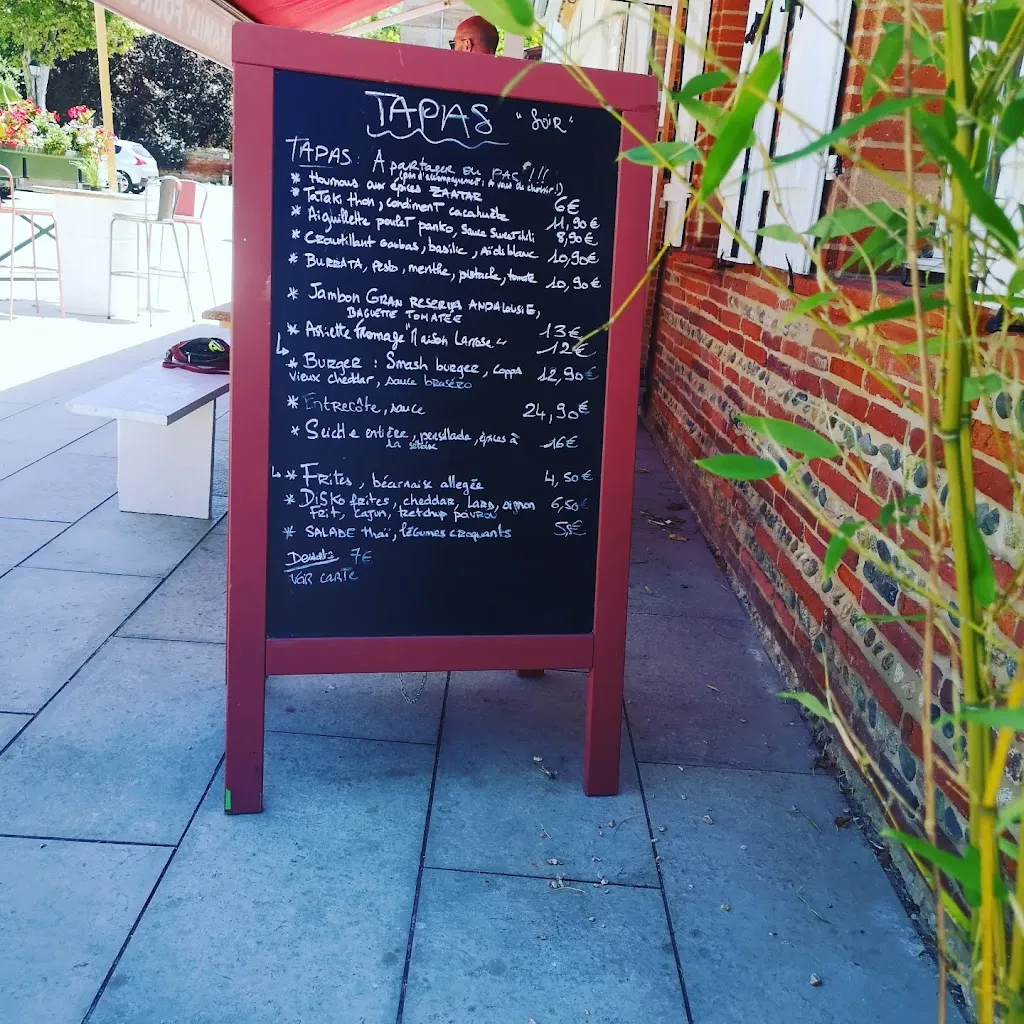 TAPAS "SOIR"
TAPAS: A partager ou pas !!!
(pas d'accompagnement, à vous de choisir!)
* Houmous aux épices ZAATAR 6€
* Tataki thon, condiment cacahuète 11,90€
* Aiguillette poulet panko, sauce sweet chili 8,90€
* Croustillant gambas, basilic, aïoli blanc 10,90€
* BURRATA, pesto, menthe, pistache, tomate 10,90€
* Jambon GRAN RESERVA ANDALOUSIE,
BAGUETTE TOMATÉE 13€
* Assiette fromage "Maison Larrose" 12€
* BURGER : Smash burger, copps 12,90€
vieux cheddar, sauce braséro
* Entrecôte, sauce 24,90€
* Seiche entière, persillade, épices à 16€
LA sétoise
* Frites, béarnaise allegée 4,50€
* Disko frites, cheddar, LARD, oignon 6,50€
FRIT, cajun, ketchup poivron
* SALADE thaï, légumes croquants 5,5€
Desserts 7€
VOIR CARTE